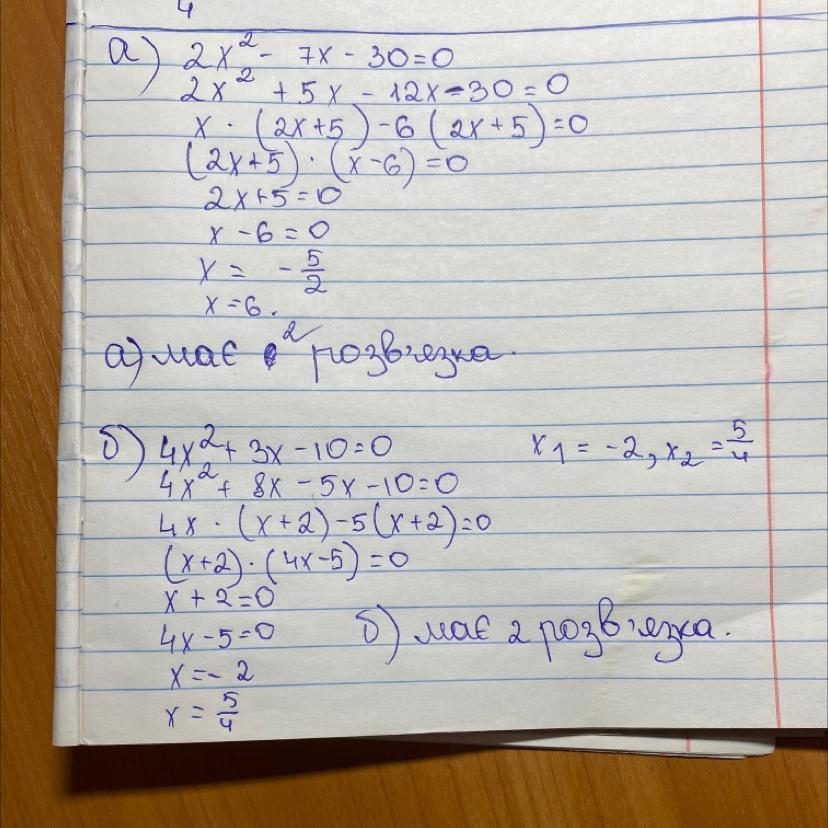 4
а) 2x² - 7x - 30 = 0
2x² + 5x - 12x - 30 = 0
x · (2x+5) - 6 (2x+5) = 0
(2x+5) · (x-6) = 0
2x+5 = 0
x - 6 = 0
x = - 5/2
x = 6.
а) має 2 розв'язка.
б) 4x² + 3x - 10 = 0
x₁ = -2, x₂ = 5/4
4x² + 8x - 5x - 10 = 0
4x · (x+2) - 5(x+2) = 0
(x+2) · (4x-5) = 0
x + 2 = 0
4x - 5 = 0
б) має 2 розв'язка.
x = - 2
x = 5/4